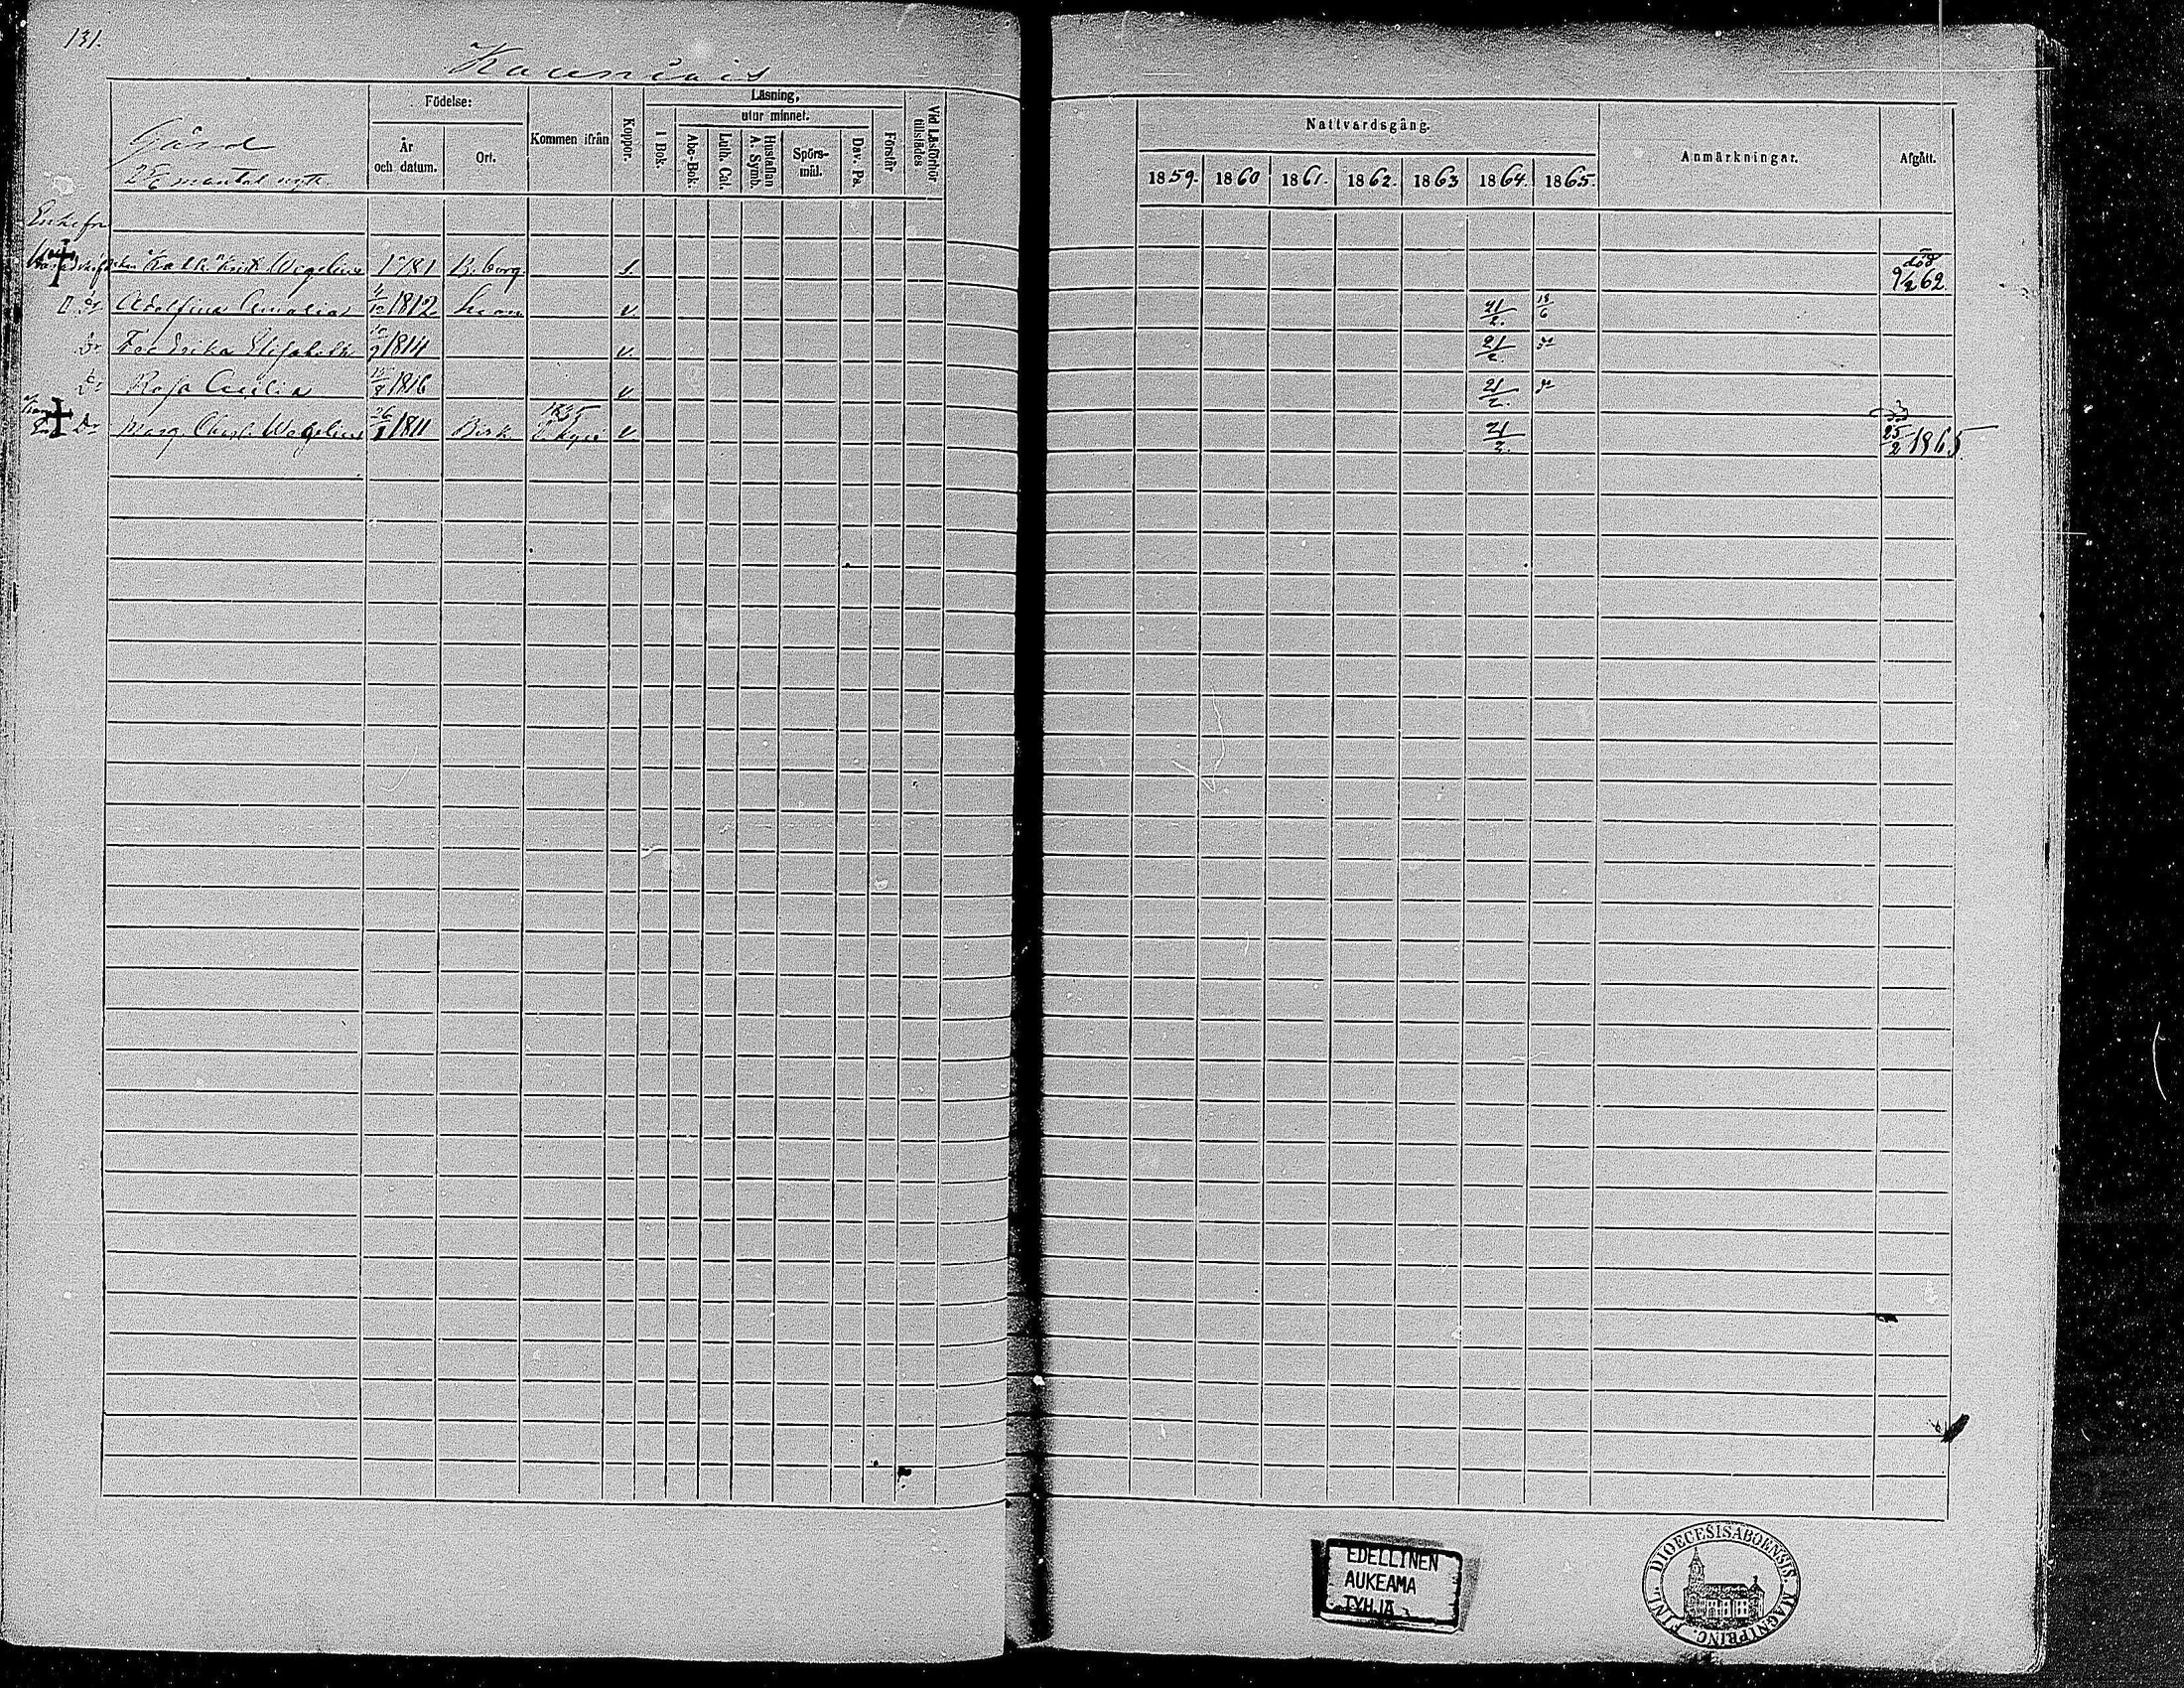 131.
Kauniais
Gård
mantal
Födelse:
År och datum.
Ort.
Kommen ifrån
Koppor.
Läsning,
I Bok.
utur minnet.
Abc-Bok.
Luth. Cat.
Hustaflan A. Symb.
Spörs-mål.
Dav. Ps.
Förstår
Vid Läsförhör tillstädes
Nattvardsgång.
1859. 1860 1861. 1862. 1863 1864. 1865.
Anmärkningar.
Afgått.
Enkefru
Wegelius 1781 B:borg s. död 9/2 62.
Adolfina Amalia 1812 v. 21/2. 18/6
Dr Fredrika Elisabeth 1814 v. 21/2.
Rosa Cecilia 1816 v 21/2.
Dr Marg. Christ. Wegelius 26/1 1811 1835 v 21/2. 25/2 1865
EDELLINEN
AUKEAMA
TYHJÄ
DIOECESIS ABOENSIS. MAGNI PRINC. FINL.